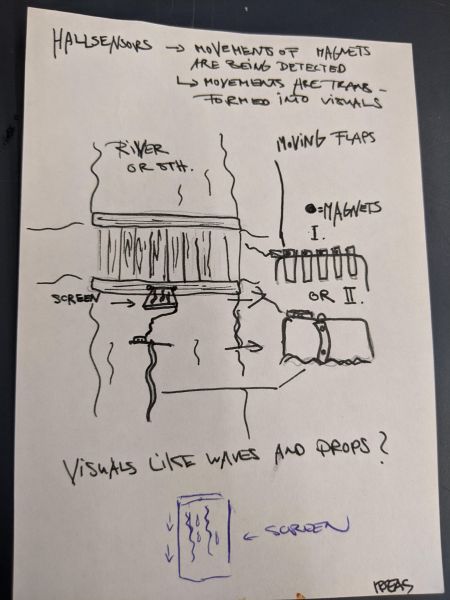 HALLSENSORS → MOVEMENTS OF MAGNETS
ARE BEING DETECTED
↳ MOVEMENTS ARE TRANS-
FORMED INTO VISUALS
RIVER
OR STH.
MOVING FLAPS
●=MAGNETS
I.
OR II.
SCREEN
VISUALS LIKE WAVES AND DROPS?
← SCREEN
IDEAS